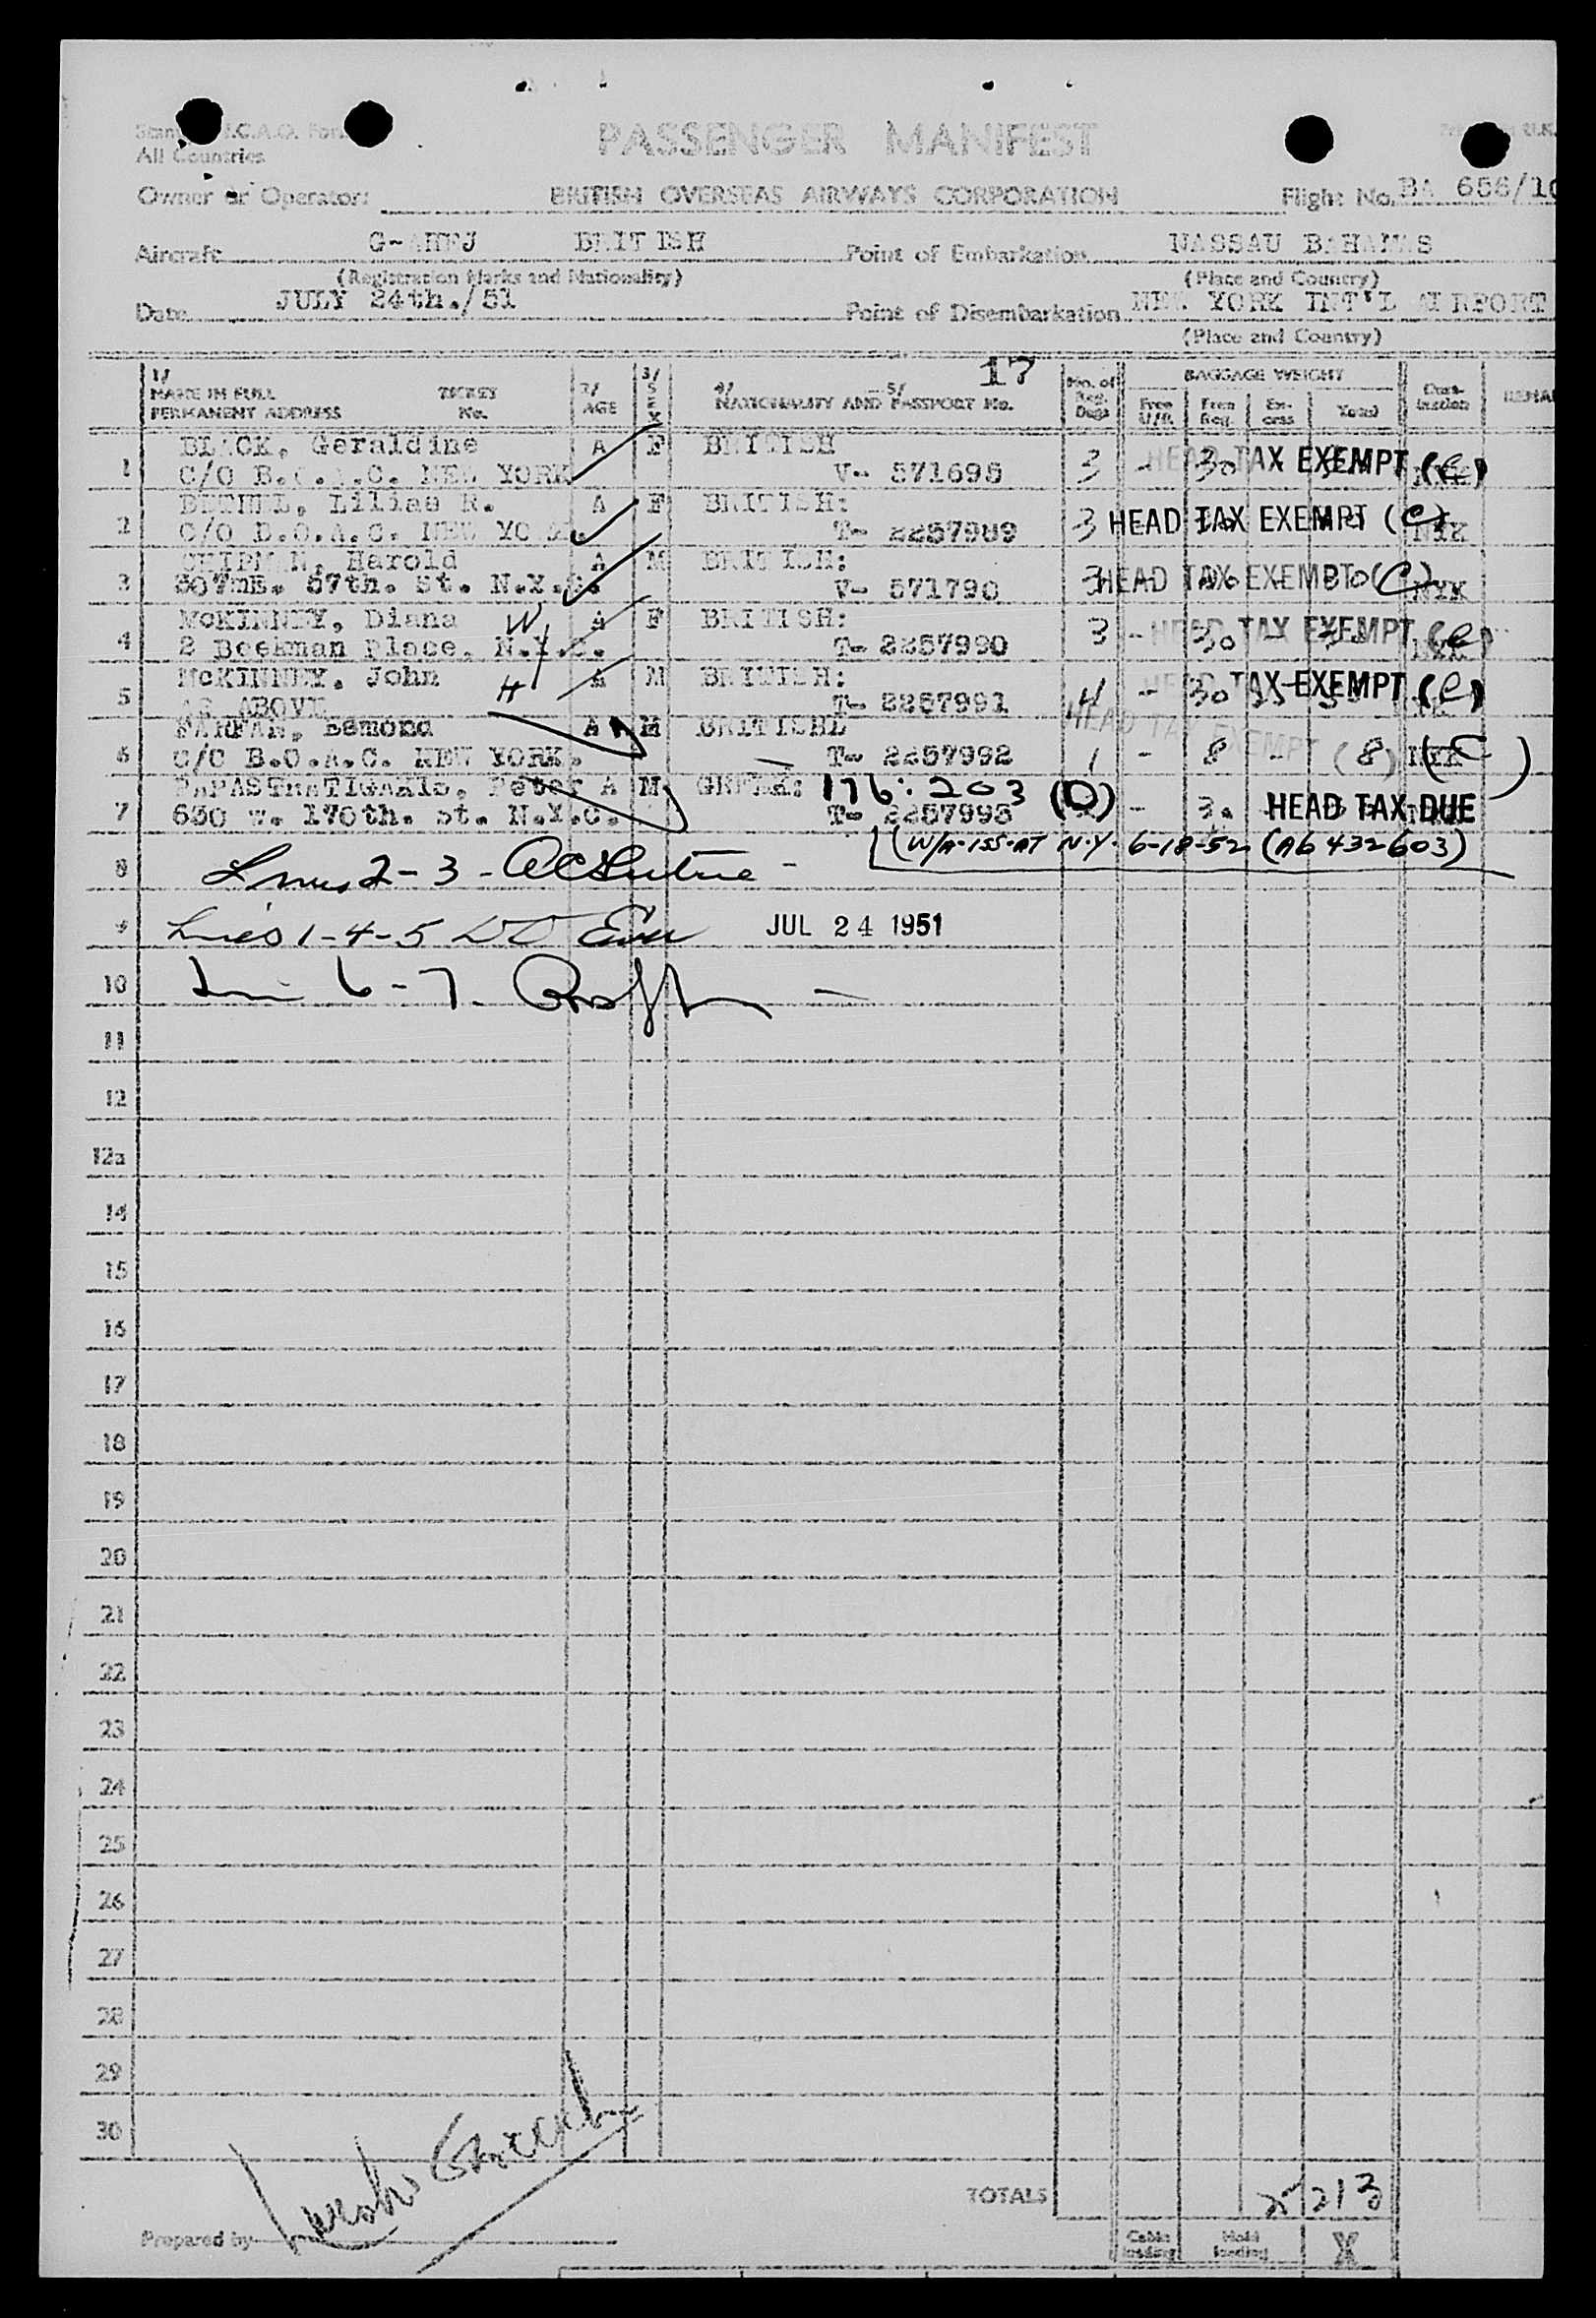 All Countries
PASSENGER MANIFEST
Owner or Operator: BRITISH OVERSEAS AIRWAYS CORPORATION Flight No. BA 656/10
Aircraft BRITISH Point of Embarkation NASSAU BAHAMAS
(Registration Marks and Nationality) (Place and Country)
Date JULY 24th./51 Point of Disembarkation NEW YORK INT'L AIRPORT
(Place and Country)
17
1/ NAME IN FULL PERMANENT ADDRESS TICKET No. 2/ AGE 3/ SEX 4/ 5/ NATIONALITY AND PASSPORT No. No. of Reg. BAGGAGE WEIGHT Free Free Reg. Ex-cess Total Desti-nation
1 BLACK, Geraldine A F BRITISH
C/O B.O.A.C. NEW YORK V- 571695 3 - 30 HEAD TAX EXEMPT (C)
2 BETHEL, Lilias R. A F BRITISH:
C/O B.O.A.C. NEW YORK. T- 2257989 3 HEAD TAX EXEMPT (C) NYK
3 SHIPMAN, Harold A M BRITISH:
57th. St. N.Y.C. V- 571790 3 HEAD TAX EXEMPT (C) NYK
4 McKINNEY, Diana W A F BRITISH:
2 Beekman Place, N.Y.C. T- 2257990 3 - 30 HEAD TAX EXEMPT (C)
5 McKINNEY, John H A M BRITISH:
AS ABOVE T- 2257991 4 - 30 TAX EXEMPT (C)
6 FARFAN, Esmond A M BRITISH
C/O B.O.A.C. NEW YORK. T- 2257992 1 - 8 - 8 NYK (C)
HEAD TAX EXEMPT
7 PAPASTRATIGAKIS, Peter A M GREEK: 176:203 (D)
630 w. 170th. st. N.Y.C. T- 2257993 - HEAD TAX DUE
(W/A-ISS-AT N.Y. 6-18-52 (A6 432603)
8 Lines 2-3 -
9 Lines 1-4-5 JUL 24 1951
10 6-7-
11
12
12a
14
15
16
17
18
19
20
21
22
23
24
25
26
27
28
29
30
TOTALS 25 213
Prepared by
Cabin loading Hold loading X